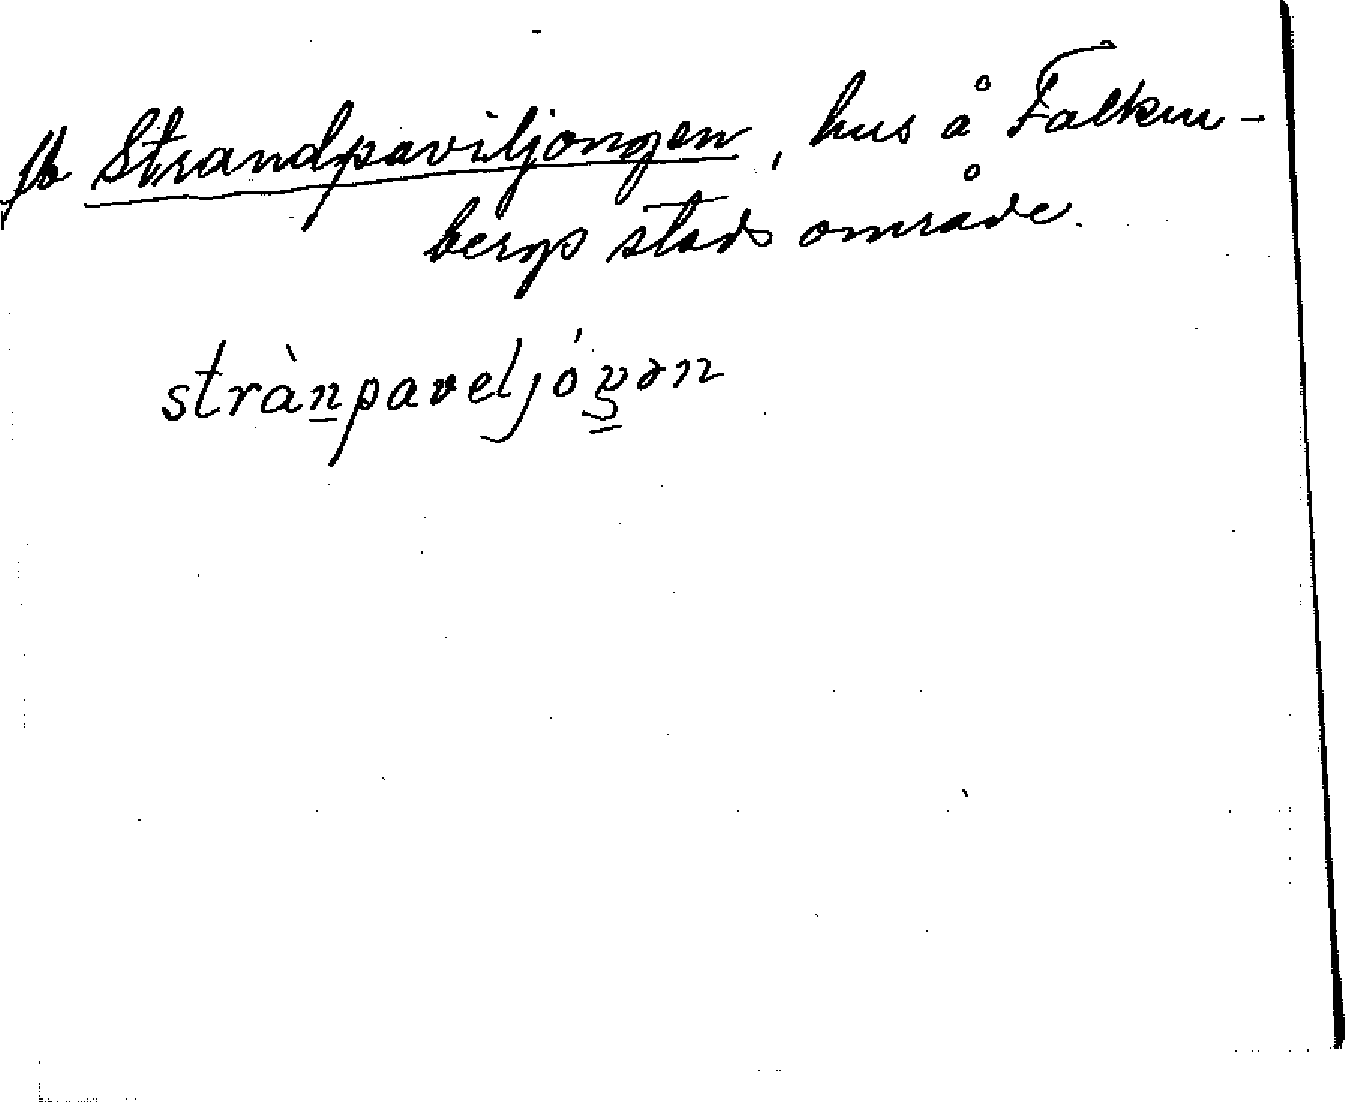 Strandpaviljongen, hus å Falken-
bergs stads område.
strànpaveljóŋən